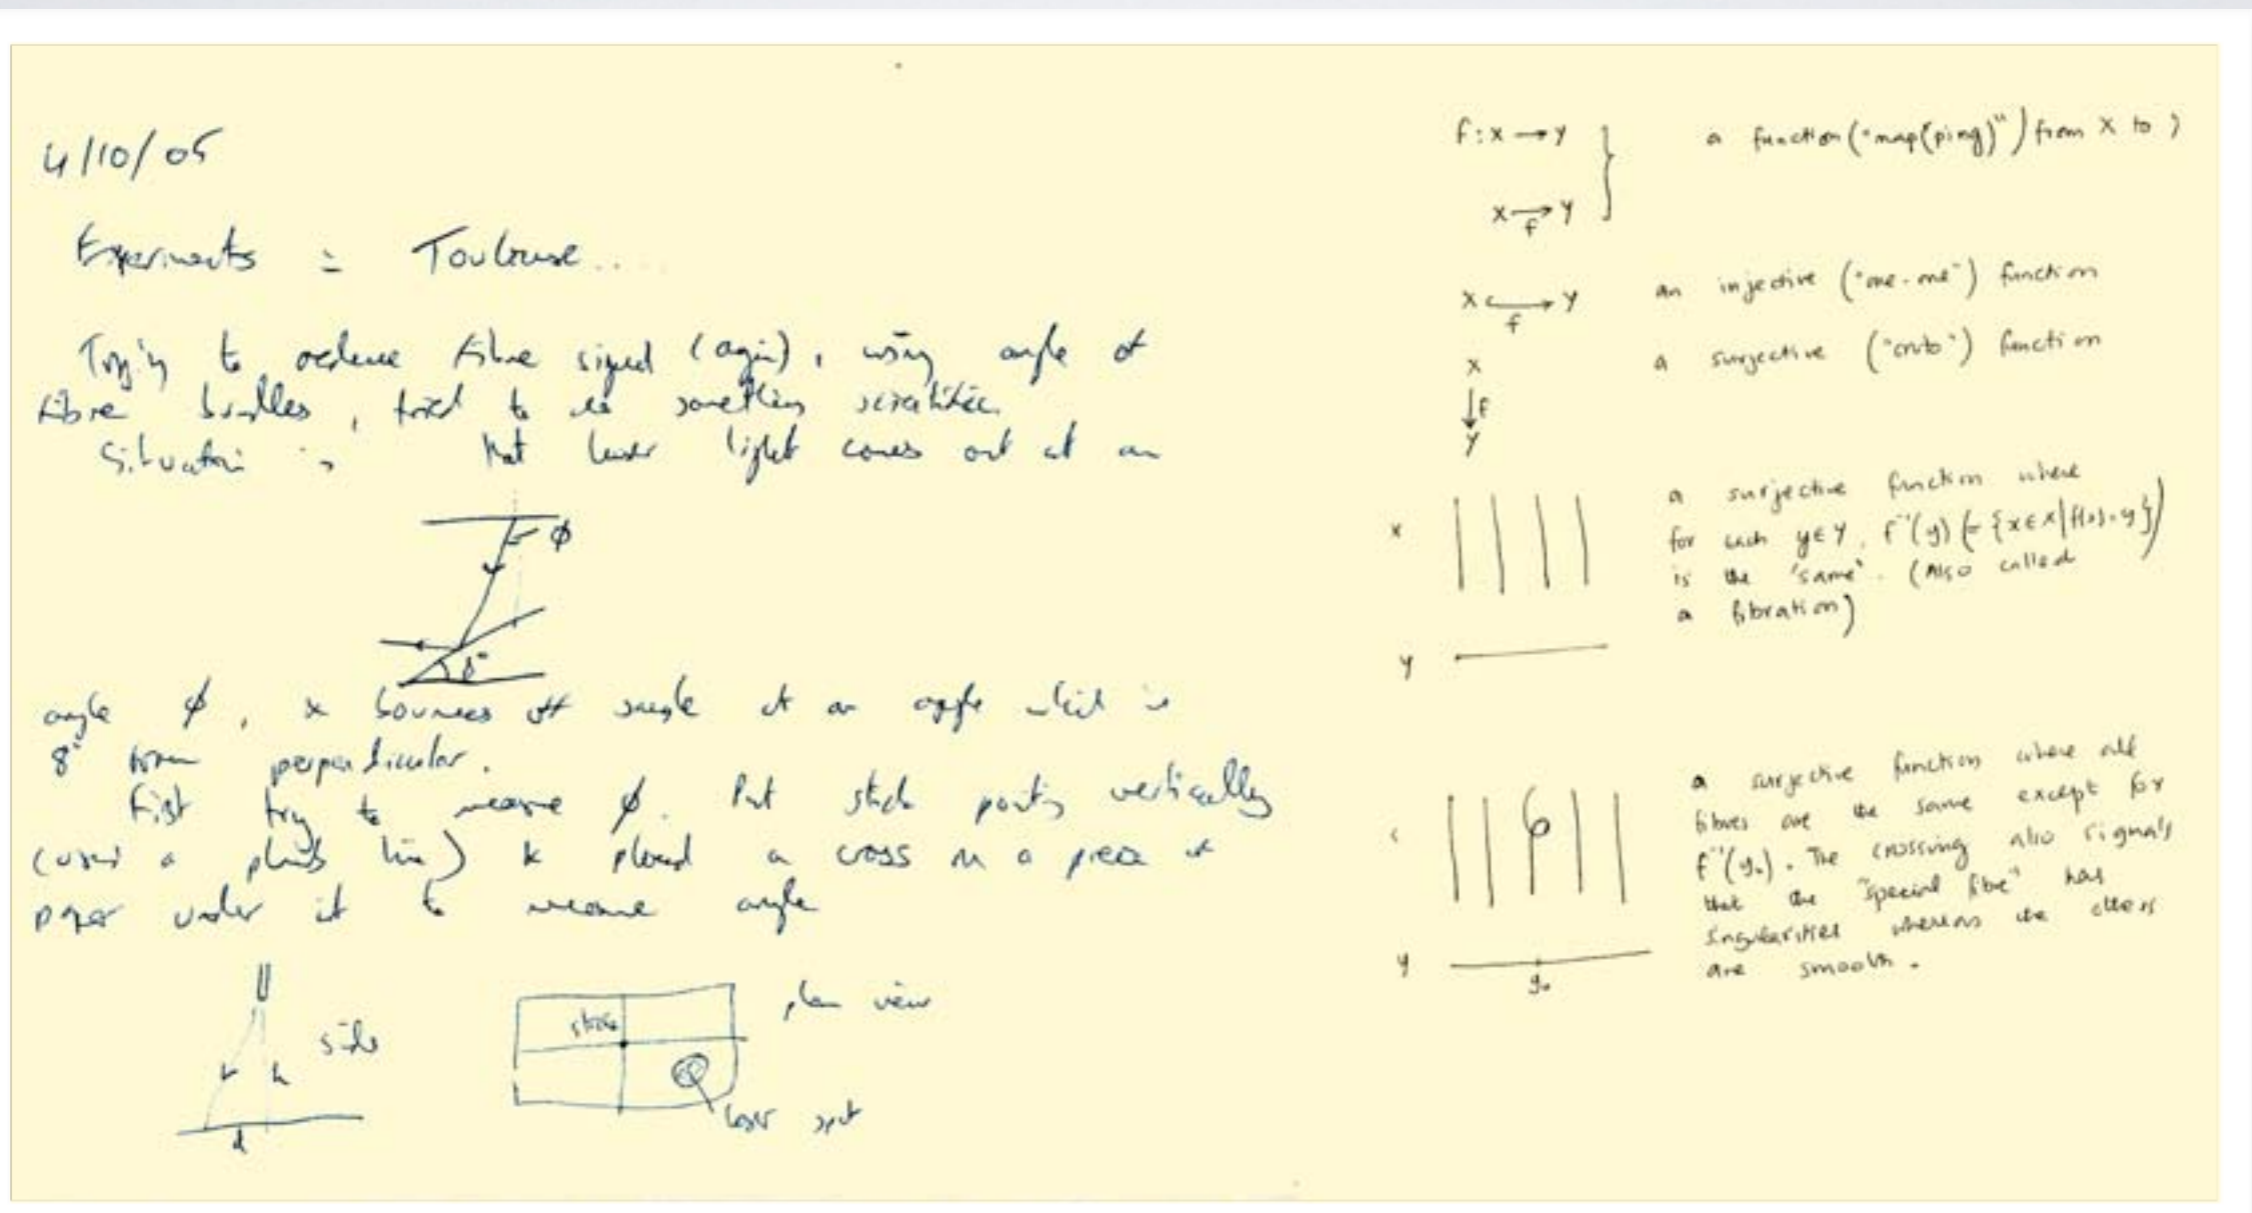 4/10/05
Experiments = Toulouse...
Trying to reduce fibre signal (again), using angle of
fibre bundles, tried to do something scientific.
Situation is that laser light comes out at an
φ
8°
angle φ, & bounces off sample at an angle which is
8° from perpendicular.
First try to measure φ. Put stick pointing vertically
(used a plumb line) & placed a cross on a piece of
paper under it to measure angle
side
r h
d
plan view
stick
laser spot
f: X → Y
X → Y
f
a function ("map(ping)") from X to Y
X ↪ Y
f
an injective ("one-one") function
X
↓f
Y
a surjective ("onto") function
X
Y
a surjective function where
for each y∈Y, f⁻¹(y) (= {x∈X|f(x)=y})
is the 'same'. (Also called
a fibration)
Y
y₀
a surjective function where all
fibres are the same except for
f⁻¹(y₀). The crossing also signals
that the "special fibre" has
singularities whereas the others
are smooth.